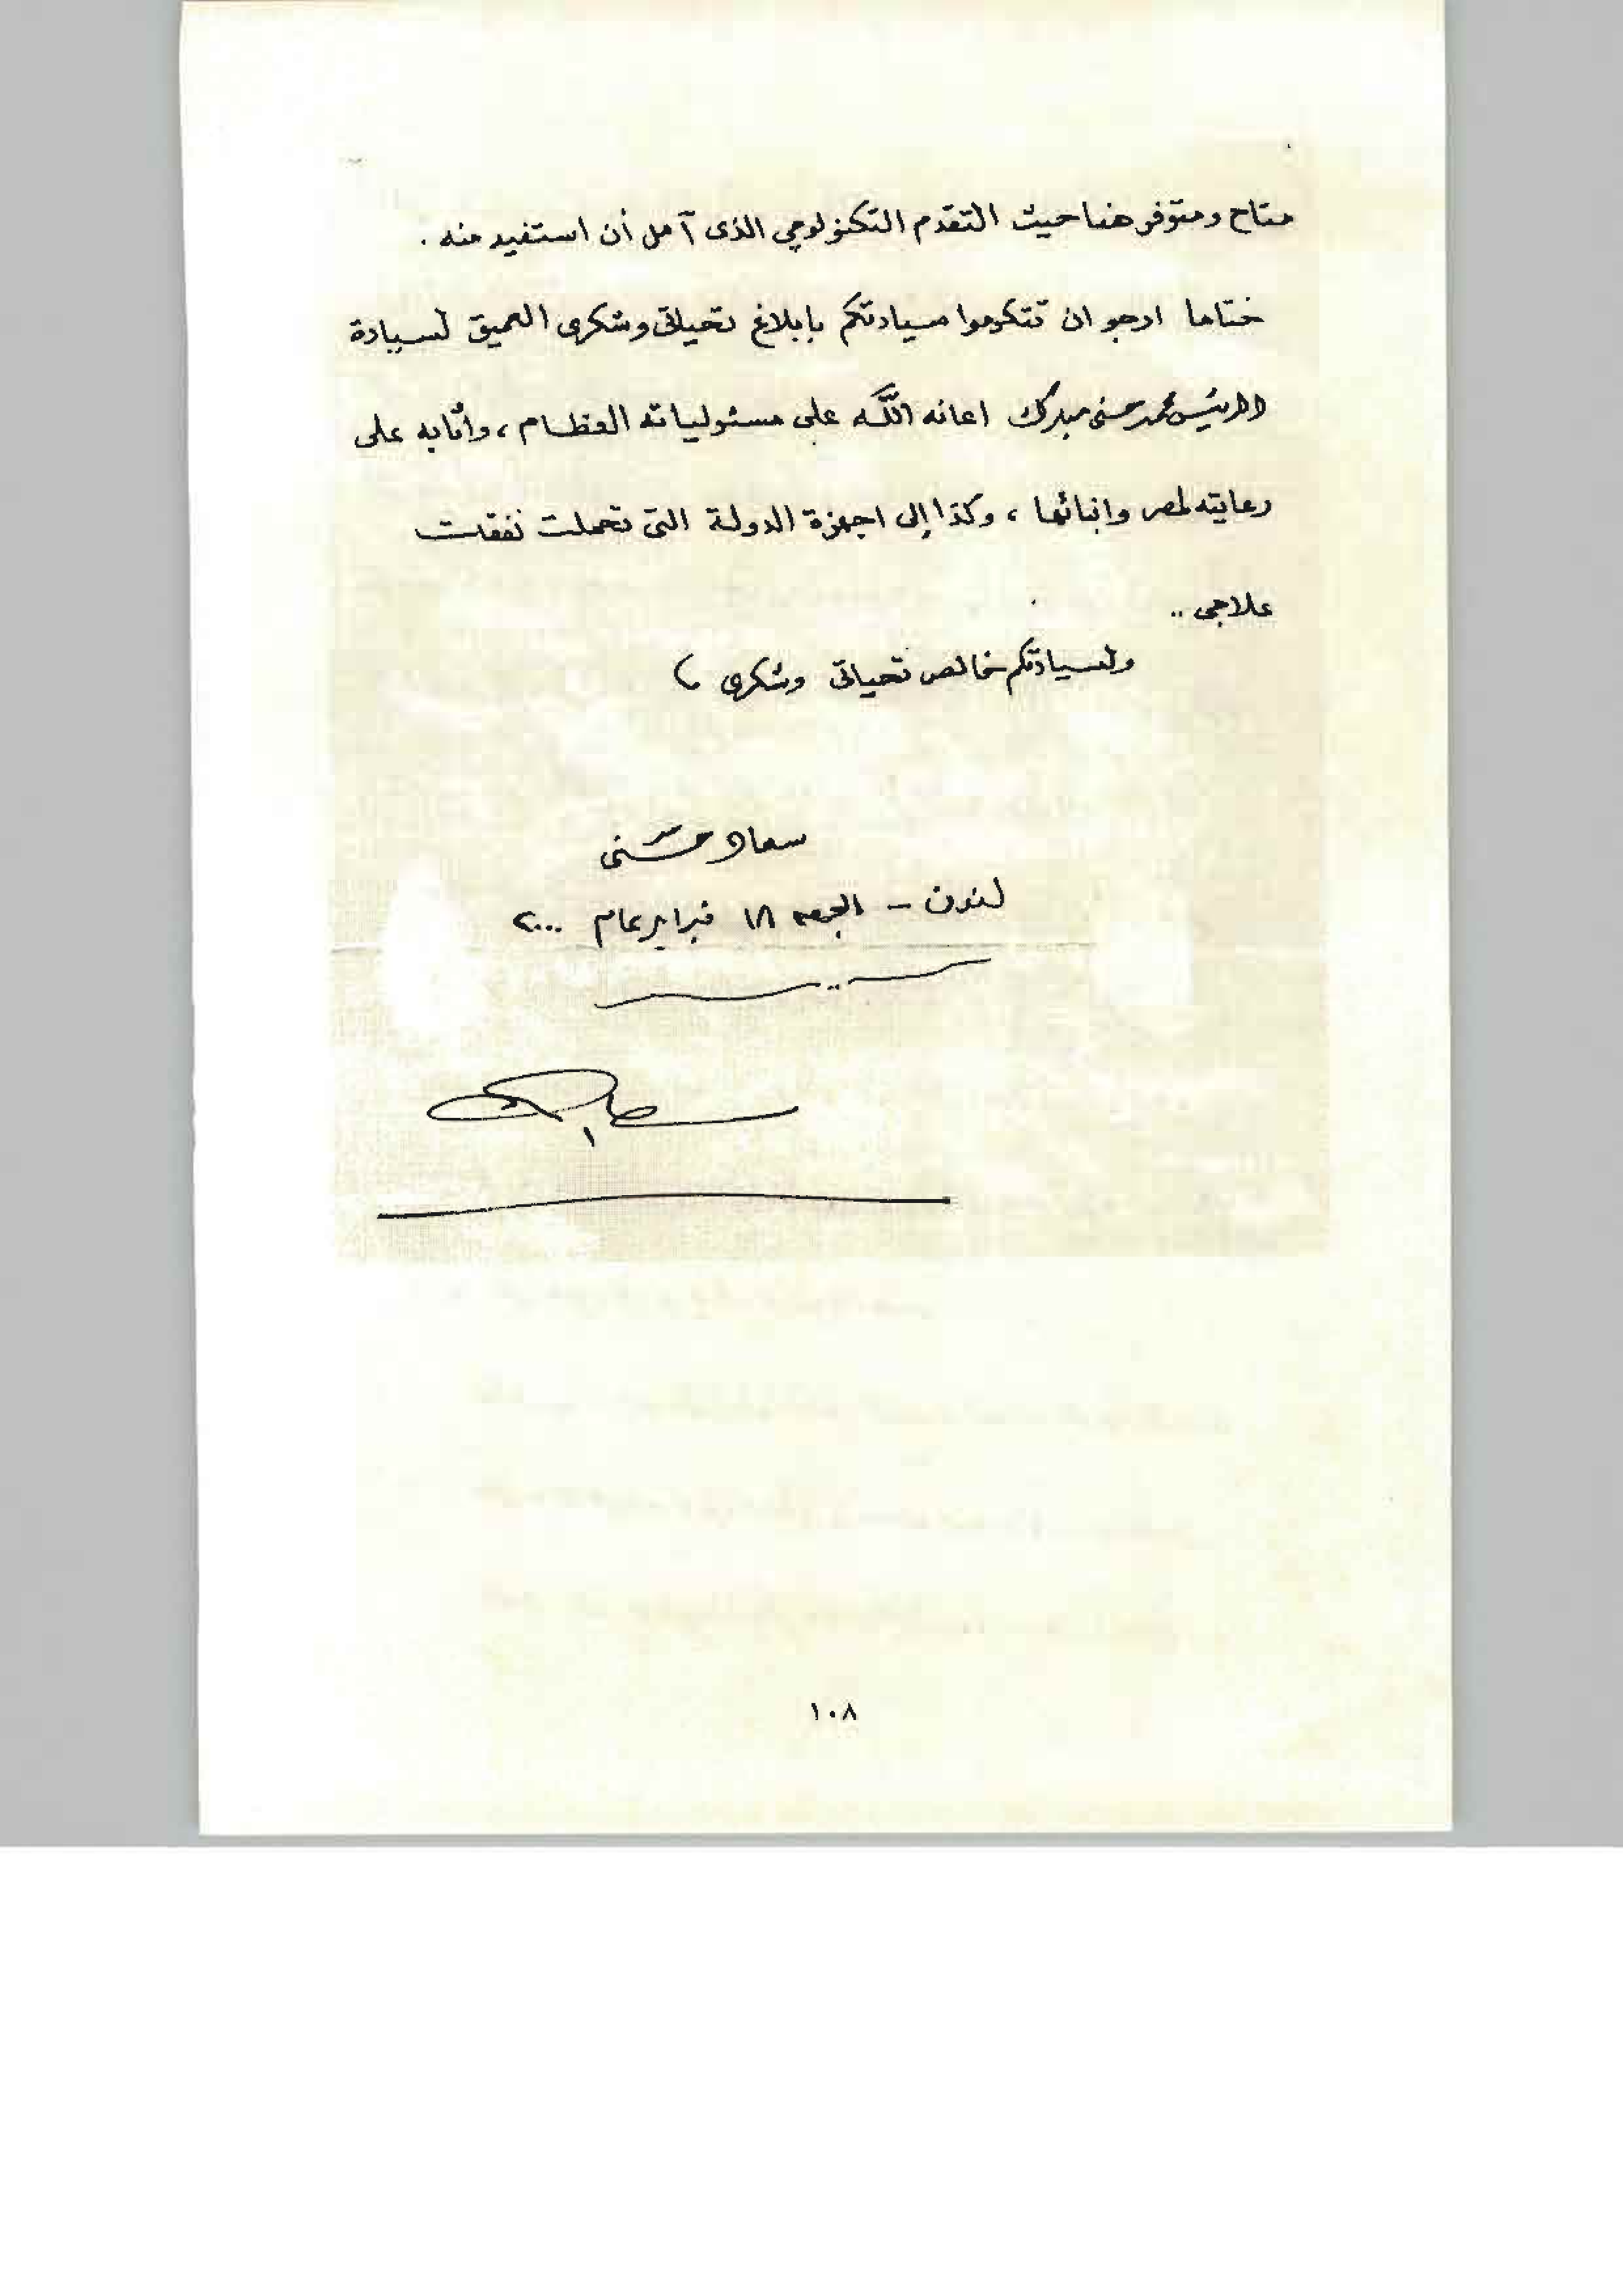 متاح ومتوفر هنا حيث التقدم التكنولوجي الذى آمل أن استفيد منه .
ختاما ارجو ان تتكرموا سيادتكم بابلاغ تحياتى وشكرى العميق لسيادة
الرئيس محمد حسنى مبارك اعانه اللّه على مسئولياته العظام ، وأثابه على
رعايته لمصر وابنائها ، وكذا إلى اجهزة الدولة التى تحملت نفقات
علاجى ..
ولسيادتكم خالص تحياتى وشكرى
سعاد حسنى
لندن - الجمعه ١٨ فبراير عام ٢٠٠٠
سعاد
١٠٨